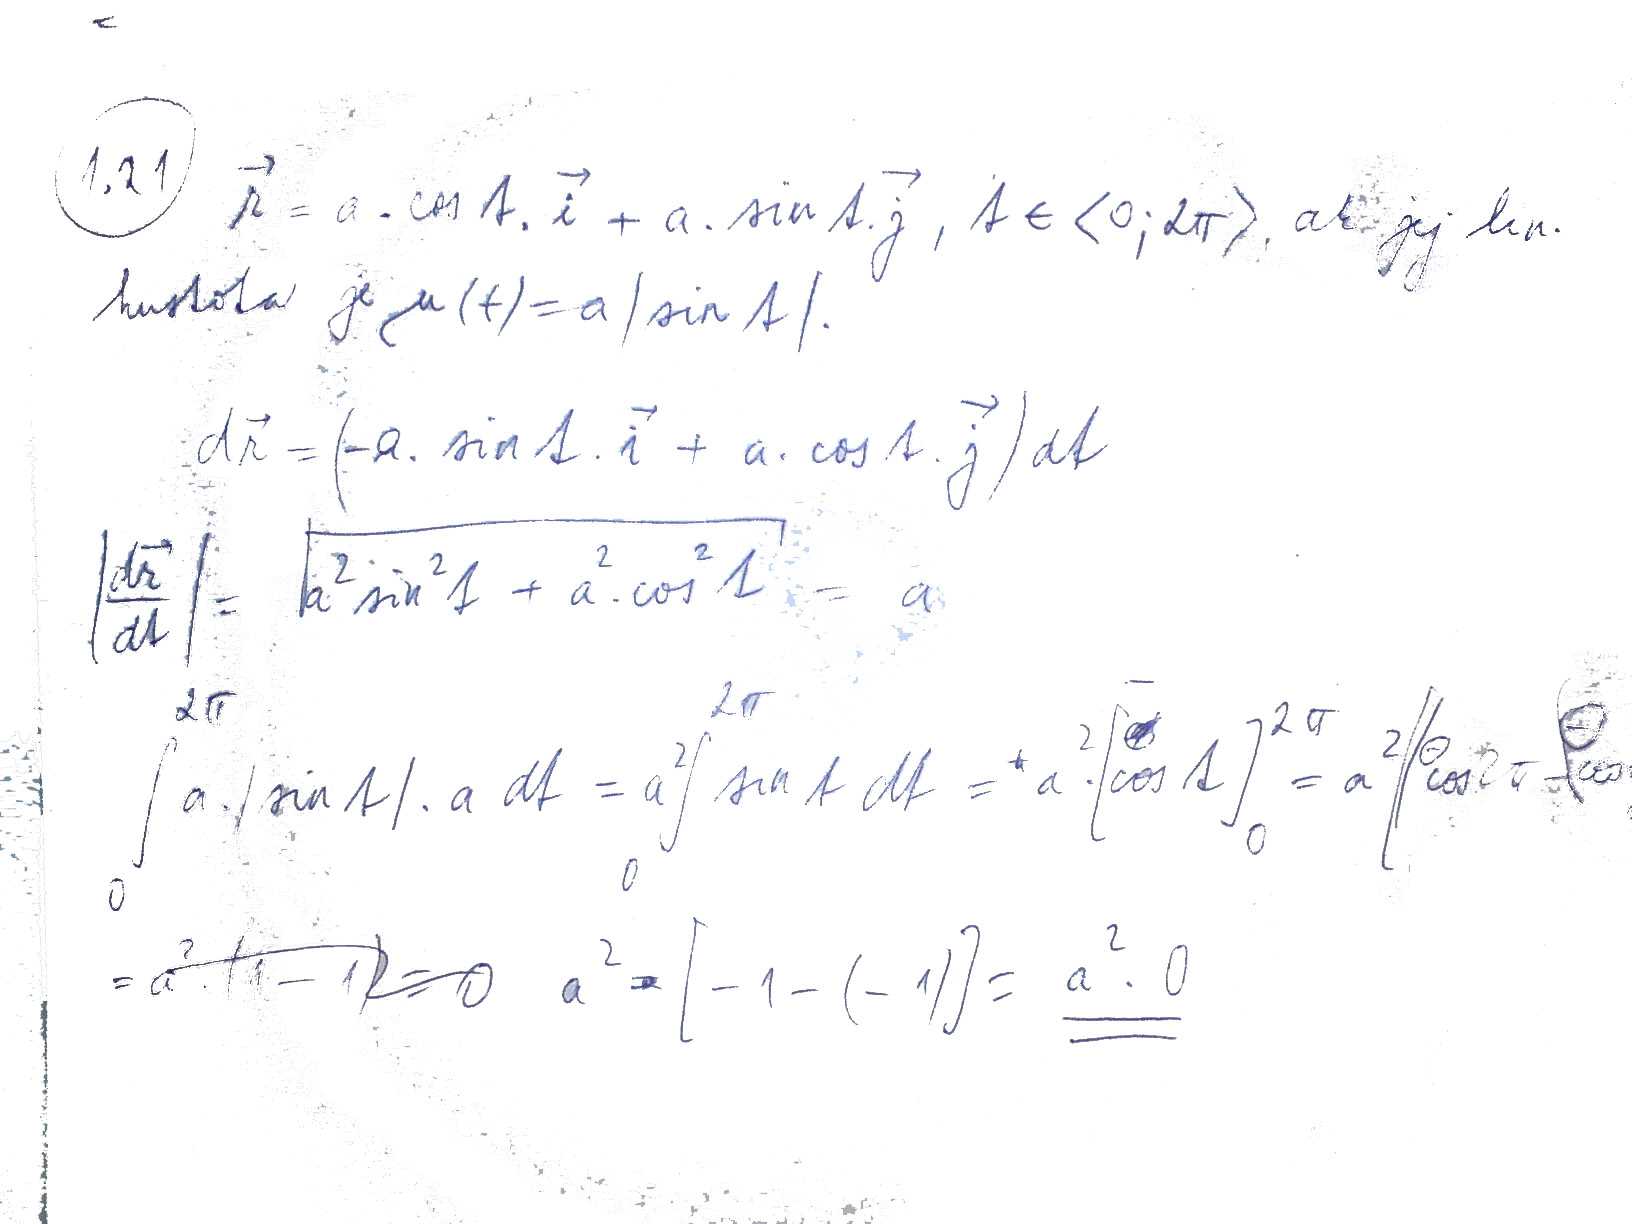 1.21 r⃗ = a . cos t . i⃗ + a . sin t . j⃗ , t ∈ <0; 2π>, ak jej lin.
hustota je μ(t) = a |sin t|.
dr⃗ = (-a . sin t . i⃗ + a . cos t . j⃗) dt
|dr⃗/dt| = √(a² sin² t + a² . cos² t) = a
∫₀^2π a . |sin t| . a dt = a² ∫₀^2π sin t dt = a² . [-cos t]₀^2π = a² [-cos 2π - (-cos
= a² . (1 - 1) = 0 a² [-1 - (-1)] = a² . 0